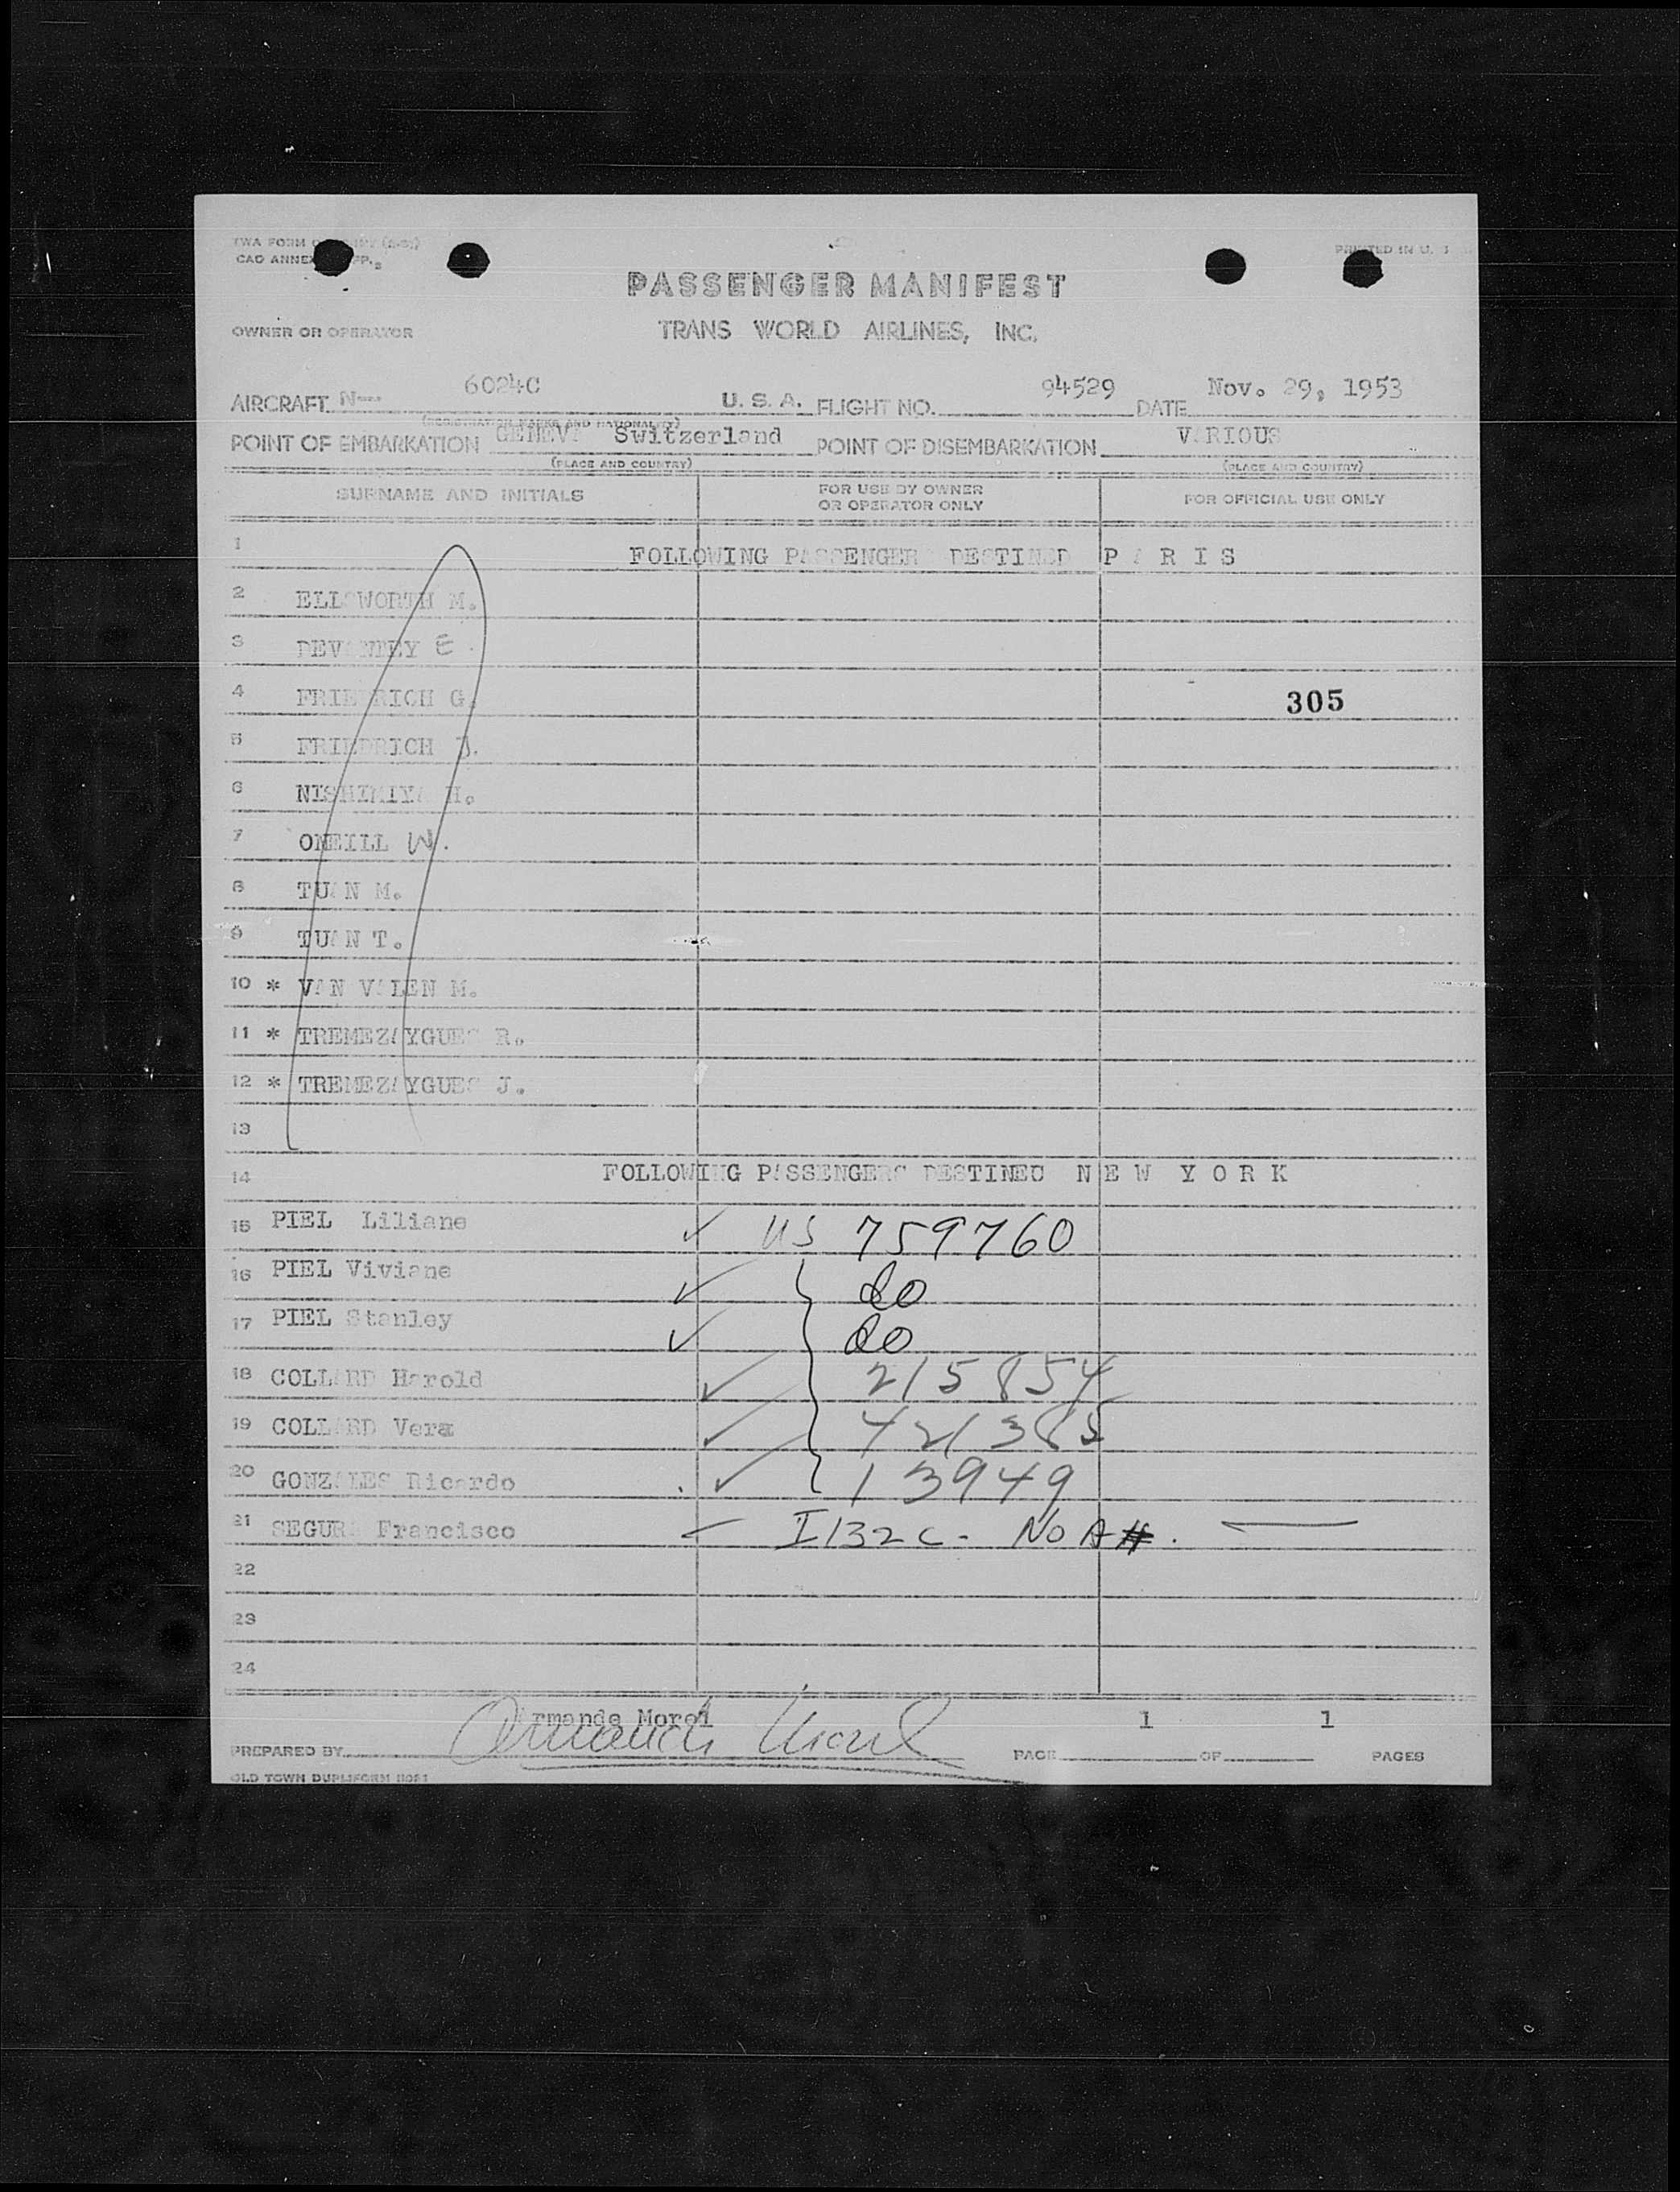 TWA FORM
CAO ANNEX
PRINTED IN U. S
PASSENGER MANIFEST
OWNER OR OPERATOR TRANS WORLD AIRLINES, INC.
AIRCRAFT N-- 6024C U. S. A. FLIGHT NO. 94529 DATE Nov. 29, 1953
(REGISTRATION MARKS AND NATIONALITY)
POINT OF EMBARKATION GENEVA Switzerland POINT OF DISEMBARKATION VARIOUS
(PLACE AND COUNTRY) (PLACE AND COUNTRY)
SURNAME AND INITIALS FOR USE BY OWNER OR OPERATOR ONLY FOR OFFICIAL USE ONLY
1 FOLLOWING PASSENGERS DESTINED P A R I S
2 ELLSWORTH M.
3 DEVANNEY E.
4 FRIEDRICH G. 305
5 FRIEDRICH J.
6 NISHIMIYA H.
7 ONEILL W.
8 TUAN M.
9 TUAN T.
10 * VAN VALEN M.
11 * TREMEZAYGUES R.
12 * TREMEZAYGUES J.
13
14 FOLLOWING PASSENGERS DESTINED N E W Y O R K
15 PIEL Liliane ✓ US 759760
16 PIEL Viviane ✓ do
17 PIEL Stanley ✓ do
18 COLLARD Harold ✓ 215854
19 COLLARD Vera ✓ 421385
20 GONZALES Ricardo ✓ 13949
21 SEGURA Francisco I132C - NO A#.
22
23
24
Armanda Morel
PREPARED BY Armanda Morel PAGE 1 OF 1 PAGES
OLD TOWN DUPLIFORM